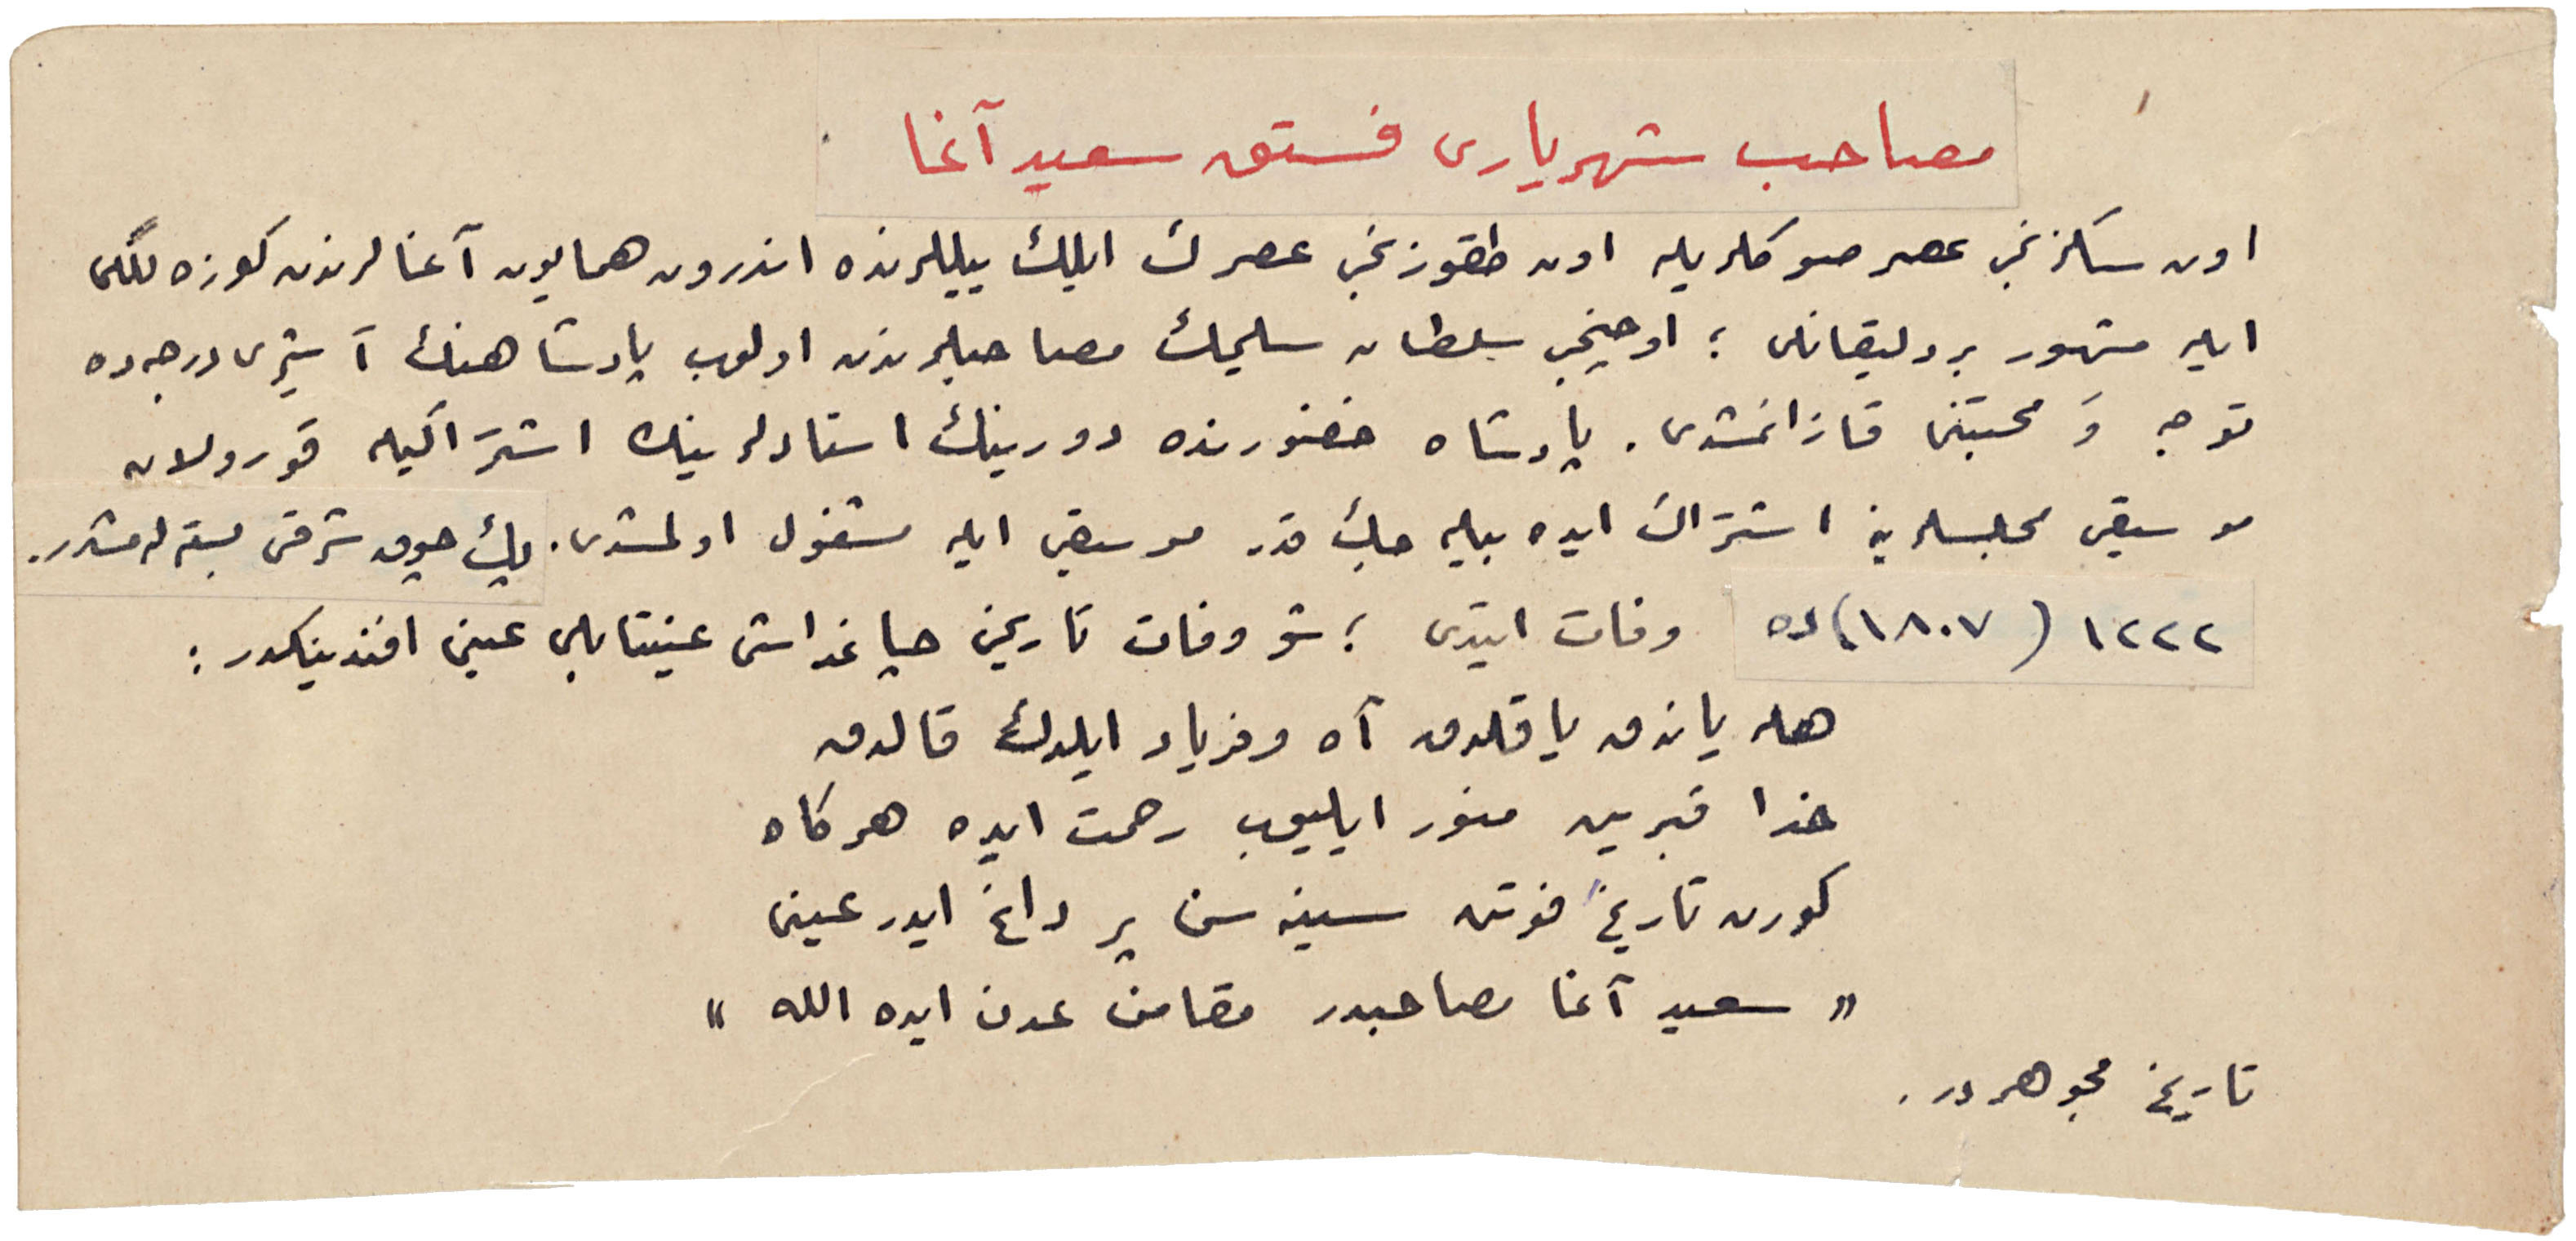 مصاحب شهریاری فستق سعید آغا
اون سكزنجی عصر صوكلریله اون طقوزنجی عصرك ایلك ییللرنده اندرون همایون آغالرندن كوزه للكی
ایله مشهور بر دلیقانلی ؛ اوچنجی سلطان سلیمك مصاحبلرندن اولوب پادشاهنك آشیری درجه ده
توجه و محبتنی قازانمشدی . پادشاه حضورنده دورینك استادلرینك اشتراكیله قورولان
موسیقی مجلسلرینه اشتراك ایده بیله جك قدر موسیقی ایله مشغول اولمشدی . پك چوق شرقی بسته له مشدر .
١٢٢٢ (١٨٠٧) ده وفات ایتدی ؛ شو وفات تاریخی چاغداشی عینتابلی عینی افندینكدر :
هله یاندق یاقلدق آه و فریاد ایلدك قالدق
خدا قبرین منور ایلیوب رحمت ایده هرگاه
كورن تاریخ فوتن سینه سن پر داغ ایدر عینی
« سعید آغا مصاحبدر مقامن عدن ایده الله »
تاریخ مجوهردر .